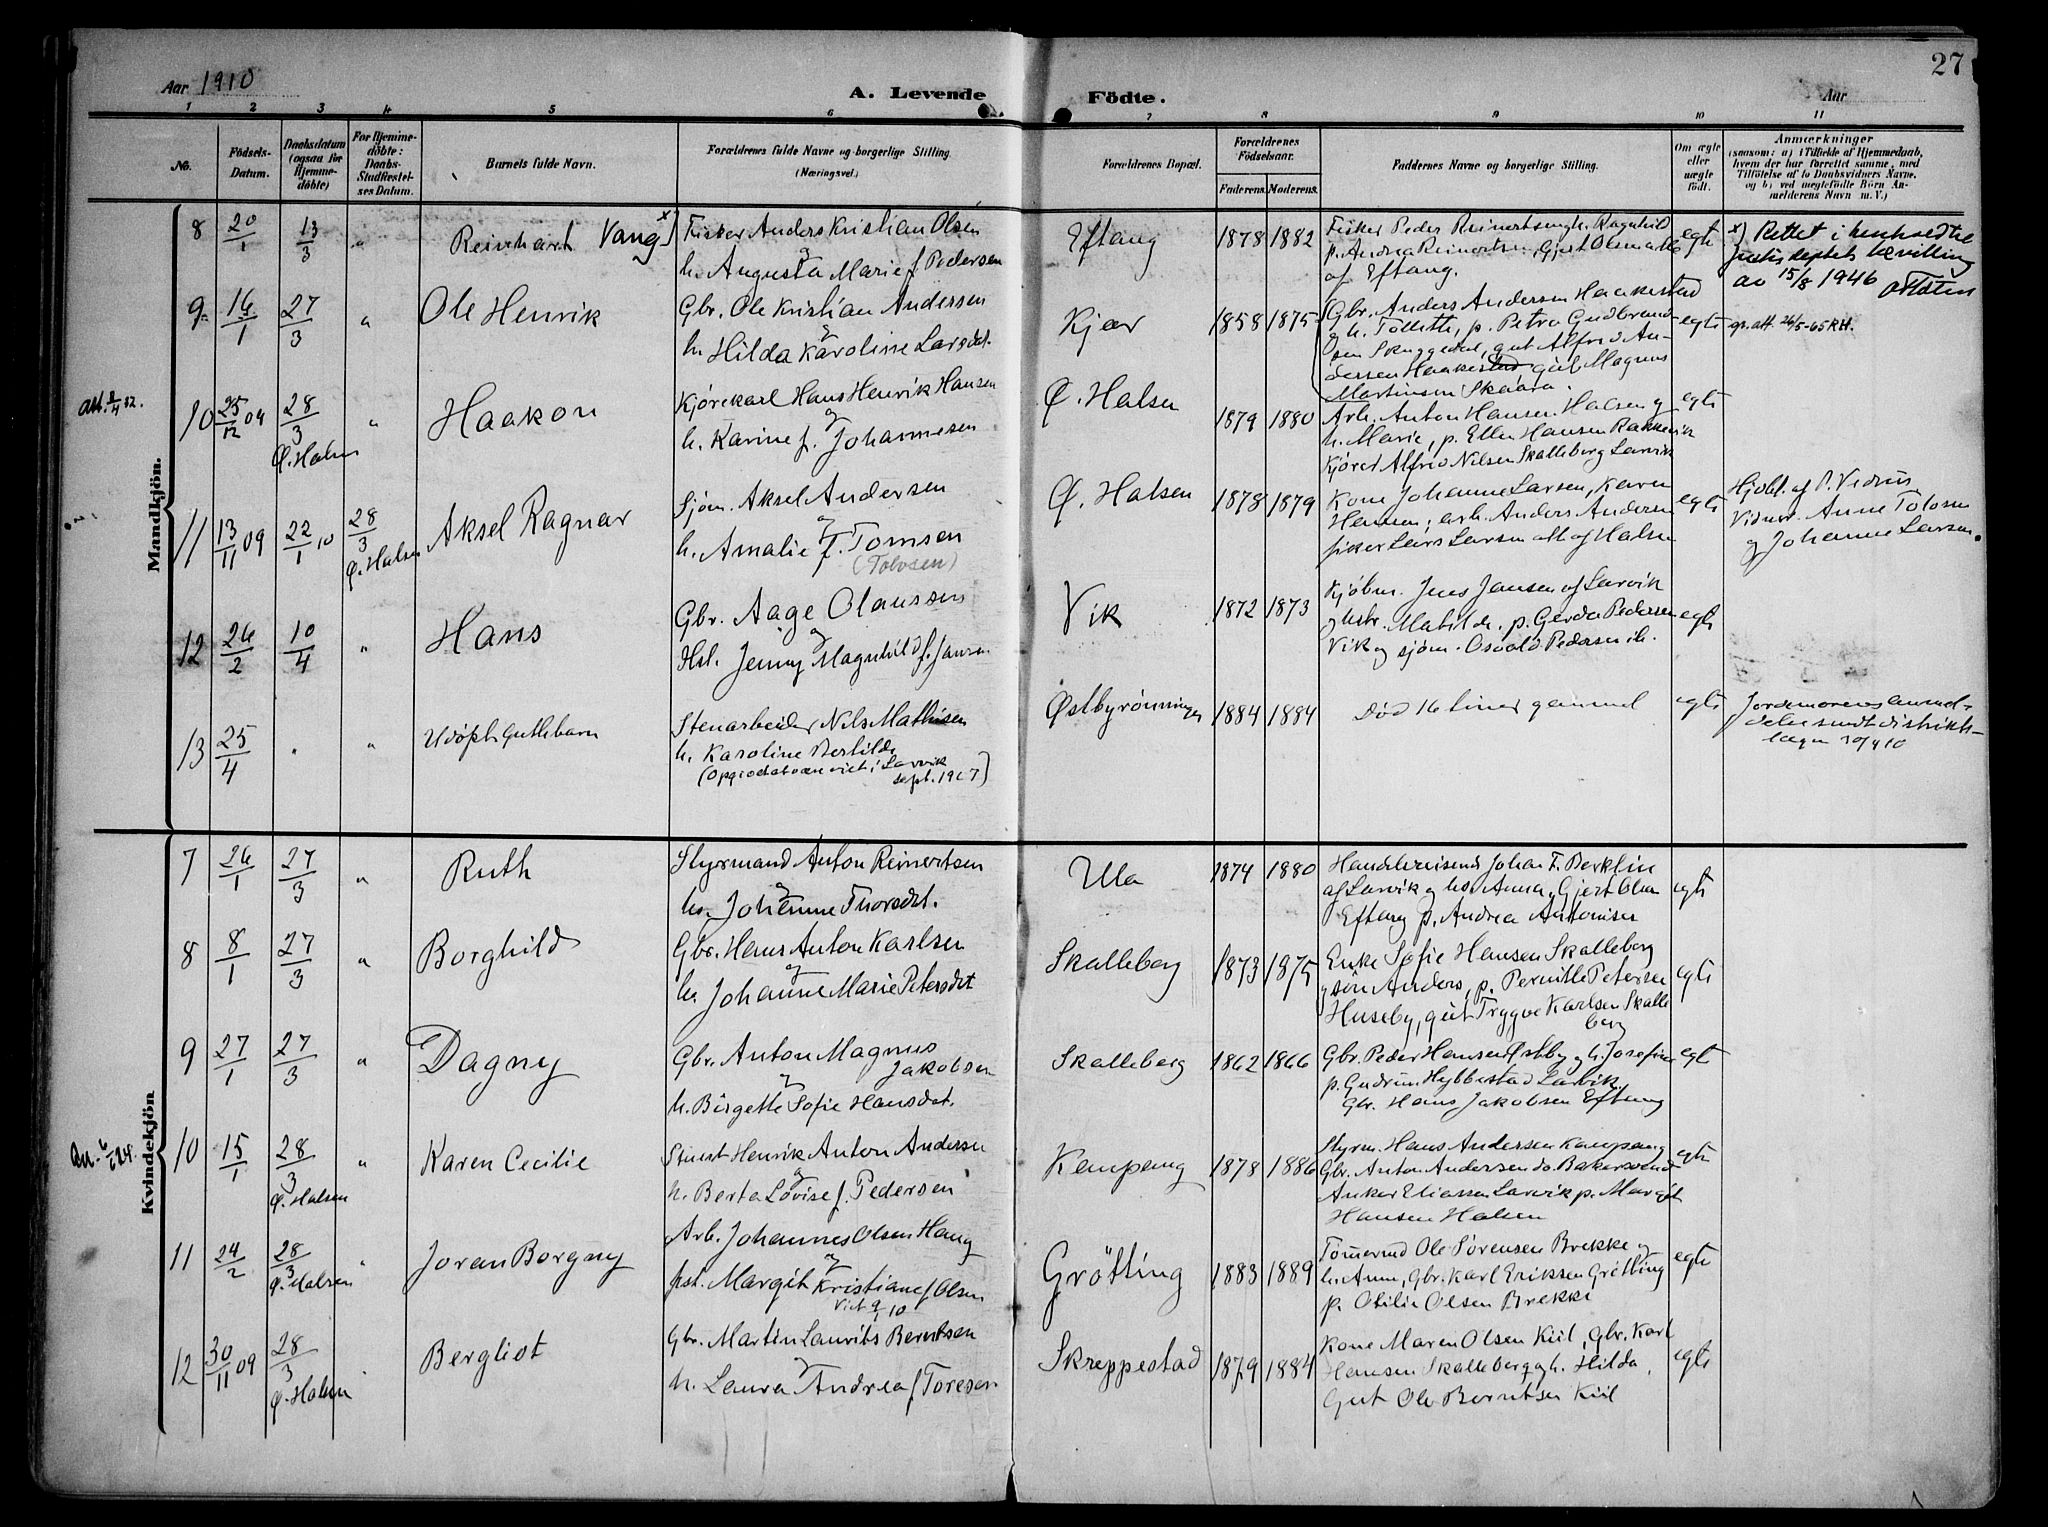 27
Aar 1910
A. Levende Födte.
Aar
1 2 3 4 5 6 7 8 9 10 11
No.
Födsels-Datum.
Daabsdatum (ogsaa for Hjemmedöbte)
For Hjemmedöbte: Daabs-Stadfæstelses Datum.
Barnets fulde Navn.
Forældrenes fulde Navne og borgerlige Stilling. (Næringsvei.)
Forældrenes Bopæl.
Forældrenes Födselsaar.
Faderens. Moderens.
Faddernes Navne og borgerlige Stilling.
Om ægte eller uægte födt.
Anmærkninger
(saasom: a) i Tilfælde af Hjemmedaab, hvem der har forrettet samme, med Tilföielse af to Daabsvidners Navne, og b) ved uægtefödte Börn Anmelderens Navn m. V.)
Mandkjön.
8 20/1 13/3 " Reinhart Vang x)
Fisker Anders Kristian Olsen
og
h. Augusta Marie f. Pedersen
Eftang 1878 1882
Fisker Peder Reinertsen og h. Ragnhild
p. Andrea Reinertsen, Gjert Olsen alle
af Eftang.
egte
x) Rettet i henhold til
justisdeptets bevilling
av 15/8 1946
9 16/1 27/3 " Ole Henrik
Gbr. Ole Kristian Andersen
og
h. Hilda Karoline Larsdat.
Kjær 1858 1875
Gbr. Anders Andersen Haakestad
og h. Tollette, p. Petra Gudbrand-
sen Skuggedal, gut Alfred An-
dersen Haakestad gut Magnus
Martinsen Skaara.
egte
att. 26/5-65 RH.
att. 2/4 32.
10 25/12 09 28/3 Ø. Halsen " Haakon
Kjörekarl Hans Henrik Hansen
og
h. Karine f. Johannesen
Ø. Halsen 1879 1880
Arb. Anton Hansen Halsen og
h. Marie, p. Ellen Hansen Rakkevik
Kjörer Alfred Nilsen Skalleberg Larvik
egte
11 13/11 09 22/1 10 28/3 Ø. Halsen Aksel Ragnar
Sjøm. Aksel Andersen
og
h. Amalie f. Tomsen
(Tolvsen)
Ø. Halsen 1878 1879
Kone Johanne Larsen, Karen
Hansen, arb. Anders Andersen
fisker Lars Larsen alle af Halsen
egte
Hjdbt. af P. Vedrus
Vidner. Anne Tolvsen
og Johanne Larsen.
12 26/2 10/4 " Hans
Gbr. Aage Olaussen
og
Hst. Jenny Magnhild f. Jansen
Vik 1872 1873
Kjøbm. Jens Jansen af Larvik
og hstr. Matilde, p. Gerda Pedersen
Vik og sjøm. Osvald Pedersen ib.
egte
13 25/4 " " Udøpt Guttebarn
Stenarbeider Nils Mathisen
h. Karoline Bertilde
(Opgiodatvære viet i Larvik
sept. 1907)
Østbyrønningen 1884 1884
Død 16 timer gammel
egte
Jordmorens anmel-
delse sendt distrikts-
læge 30/4 10
Kvindekjön
7 26/1 27/3 " Ruth
Styrmand Anton Reinertsen
og
h. Johanne Thorsdat.
Ula 1874 1880
Handelsreisend Johan F. Berklin
af Larvik og h. Anna, Gjert Olsen
Eftang p. Andrea Antonisen
egte
8 8/1 27/3 " Borghild
Gbr. Hans Anton Karlsen
og
h. Johanne Marie Petersdat
Skalleberg 1873 1875
Enke Sofie Hansen Skalleberg
og søn Anders, p. Pernille Petersen
Huseby, gut Trygve Karlsen Skalle
berg
egte
9 27/1 27/3 " Dagny
Gbr. Anton Magnus
Jakobsen
og
h. Birgette Sofie Hansdat.
Skalleberg 1862 1866
Gbr. Peder Hansen Østby og h. Josefine
p. Gudrun Hybbestad Larvik
Gbr. Hans Jakobsen Eftang
egte
10 15/1 28/3 Ø. Halsen " Karen Cecilie
Stuert Henrik Anton Andersen
og
h. Berta Lovise f. Pedersen
Kampang 1878 1886
Styrm. Hans Andersen Kampang
Gbr. Anton Andersen do. Bakersvend
Anker Eliassen Larvik p. Margit
Hansen Halsen
egte
11 24/2 28/3 Ø. Halsen " Joran Borgny
Arb. Johannes Olsen Haug
og
pst. Margit Kristiane f. Olsen
Viet 9/10
Grötting 1883 1889
Tømermd Ole Sørensen Brekke og
h. Anne, Gbr. Karl Eriksen Grötting
p. Otilie Olsen Brekke
egte
12 30/11 09 28/3 Ø. Halsen " Bergliot
Gbr. Martin Laurits Berntsen
og
h. Laura Andrea f. Toresen
Skreppestad 1879 1884
Kone Maren Olsen Kiil, Gbr. Karl
Hansen Skalleberg og h. Hilda,
Gut Ole Berntsen Kiil
egte